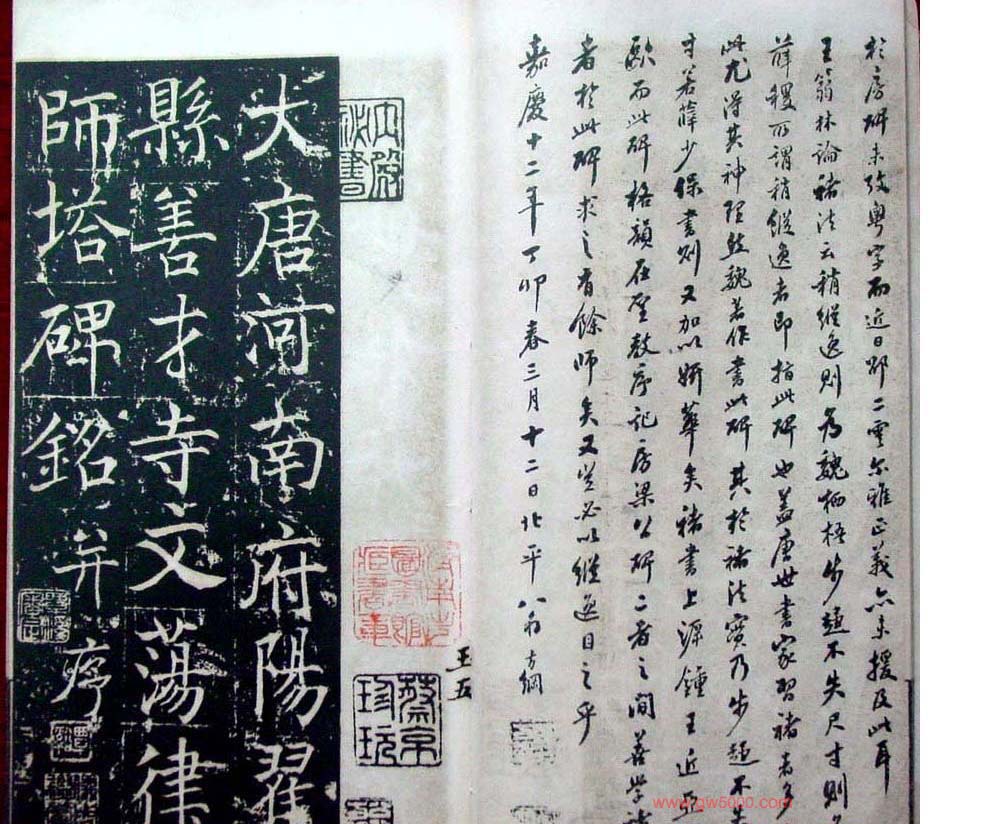 於房碑未改粤字而近日邵二雲爾雅正義亦未援及此耳
王林論褚法云稍縱逸則爲魏栖梧步趨不失尺寸則
薛稷所謂稍縱逸者即指此碑也蓋唐世書家習褚者多
此尤得其神理然魏著作書此碑其於褚法實乃步趨不失
寸若薛少保書則又加以妍華矣褚書上源鍾王近亞
歐而此碑格韻在聖教序記房梁公碑二者之間善學
者於此碑求之有餘師矣又豈必以縱逸目之乎
嘉慶十二年丁卯春三月十二日北平翁方綱
内府秘書
蔡京珍玩
大唐河南府陽翟
縣善才寺文蕩律
師塔碑銘并序
www.gw5000.com